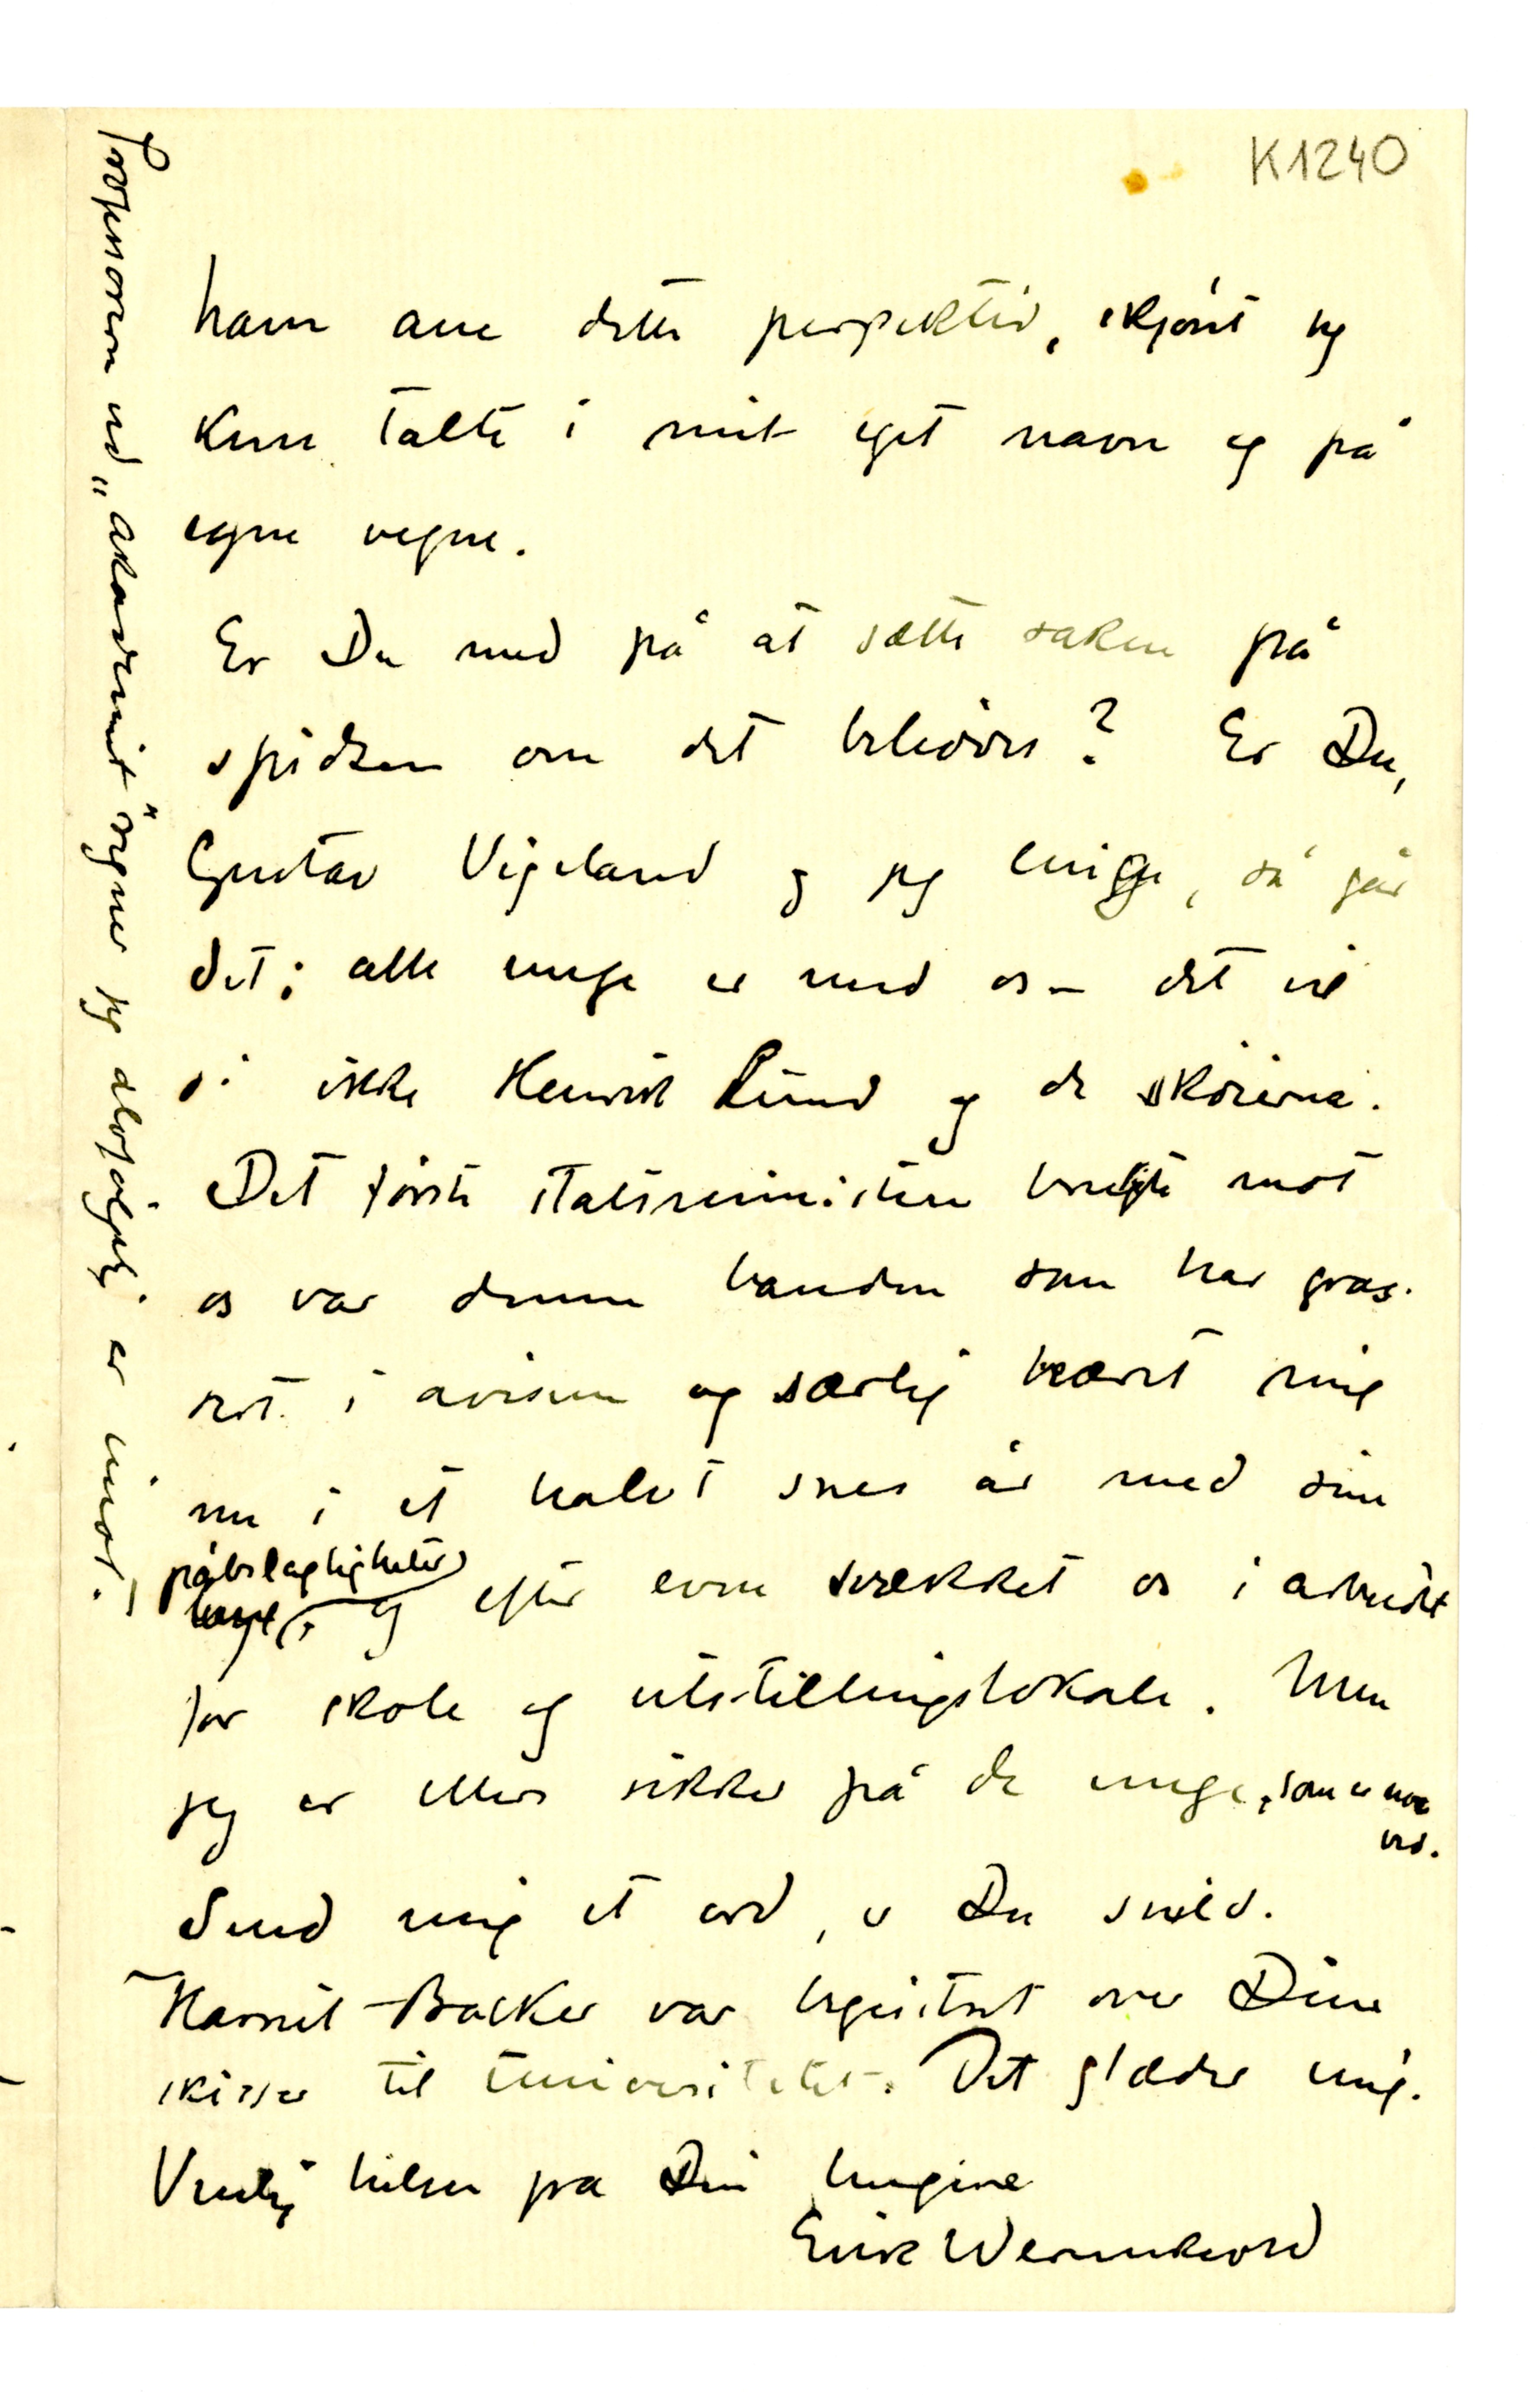 K1240
ham ane dette perspektiv, skjønt jeg
kun talte i mit eget navn og på
egne vegne.
Er Du med på at sætte saken på
spidsen om det behøves? Er Du,
Gustav Vigeland og jeg enige, så går
det; alle unge er med os – det vil
si ikke Henrik Lund og de skøierne.
Det første statsministeren brugte mot
os var denne banden som har gras-
sert i avisene og særlig beæret mig
nu i et halvt snes år med sine
påtrægtigheter
og efter evne svækket os i arbeidet
for skole og utstillingslokale. Men
jeg er ellers sikker på de unge, som er noe
ved.
Send mig et ord, er Du snild.
Harriet Backer var begeistret over Dine
skisser til Universitetet. Det glæder mig.
Venlig hilsen fra Din hengivne
Erik Werenskiold
Professoren ved „Akademiet" regner jeg selvfølgelig er imot.